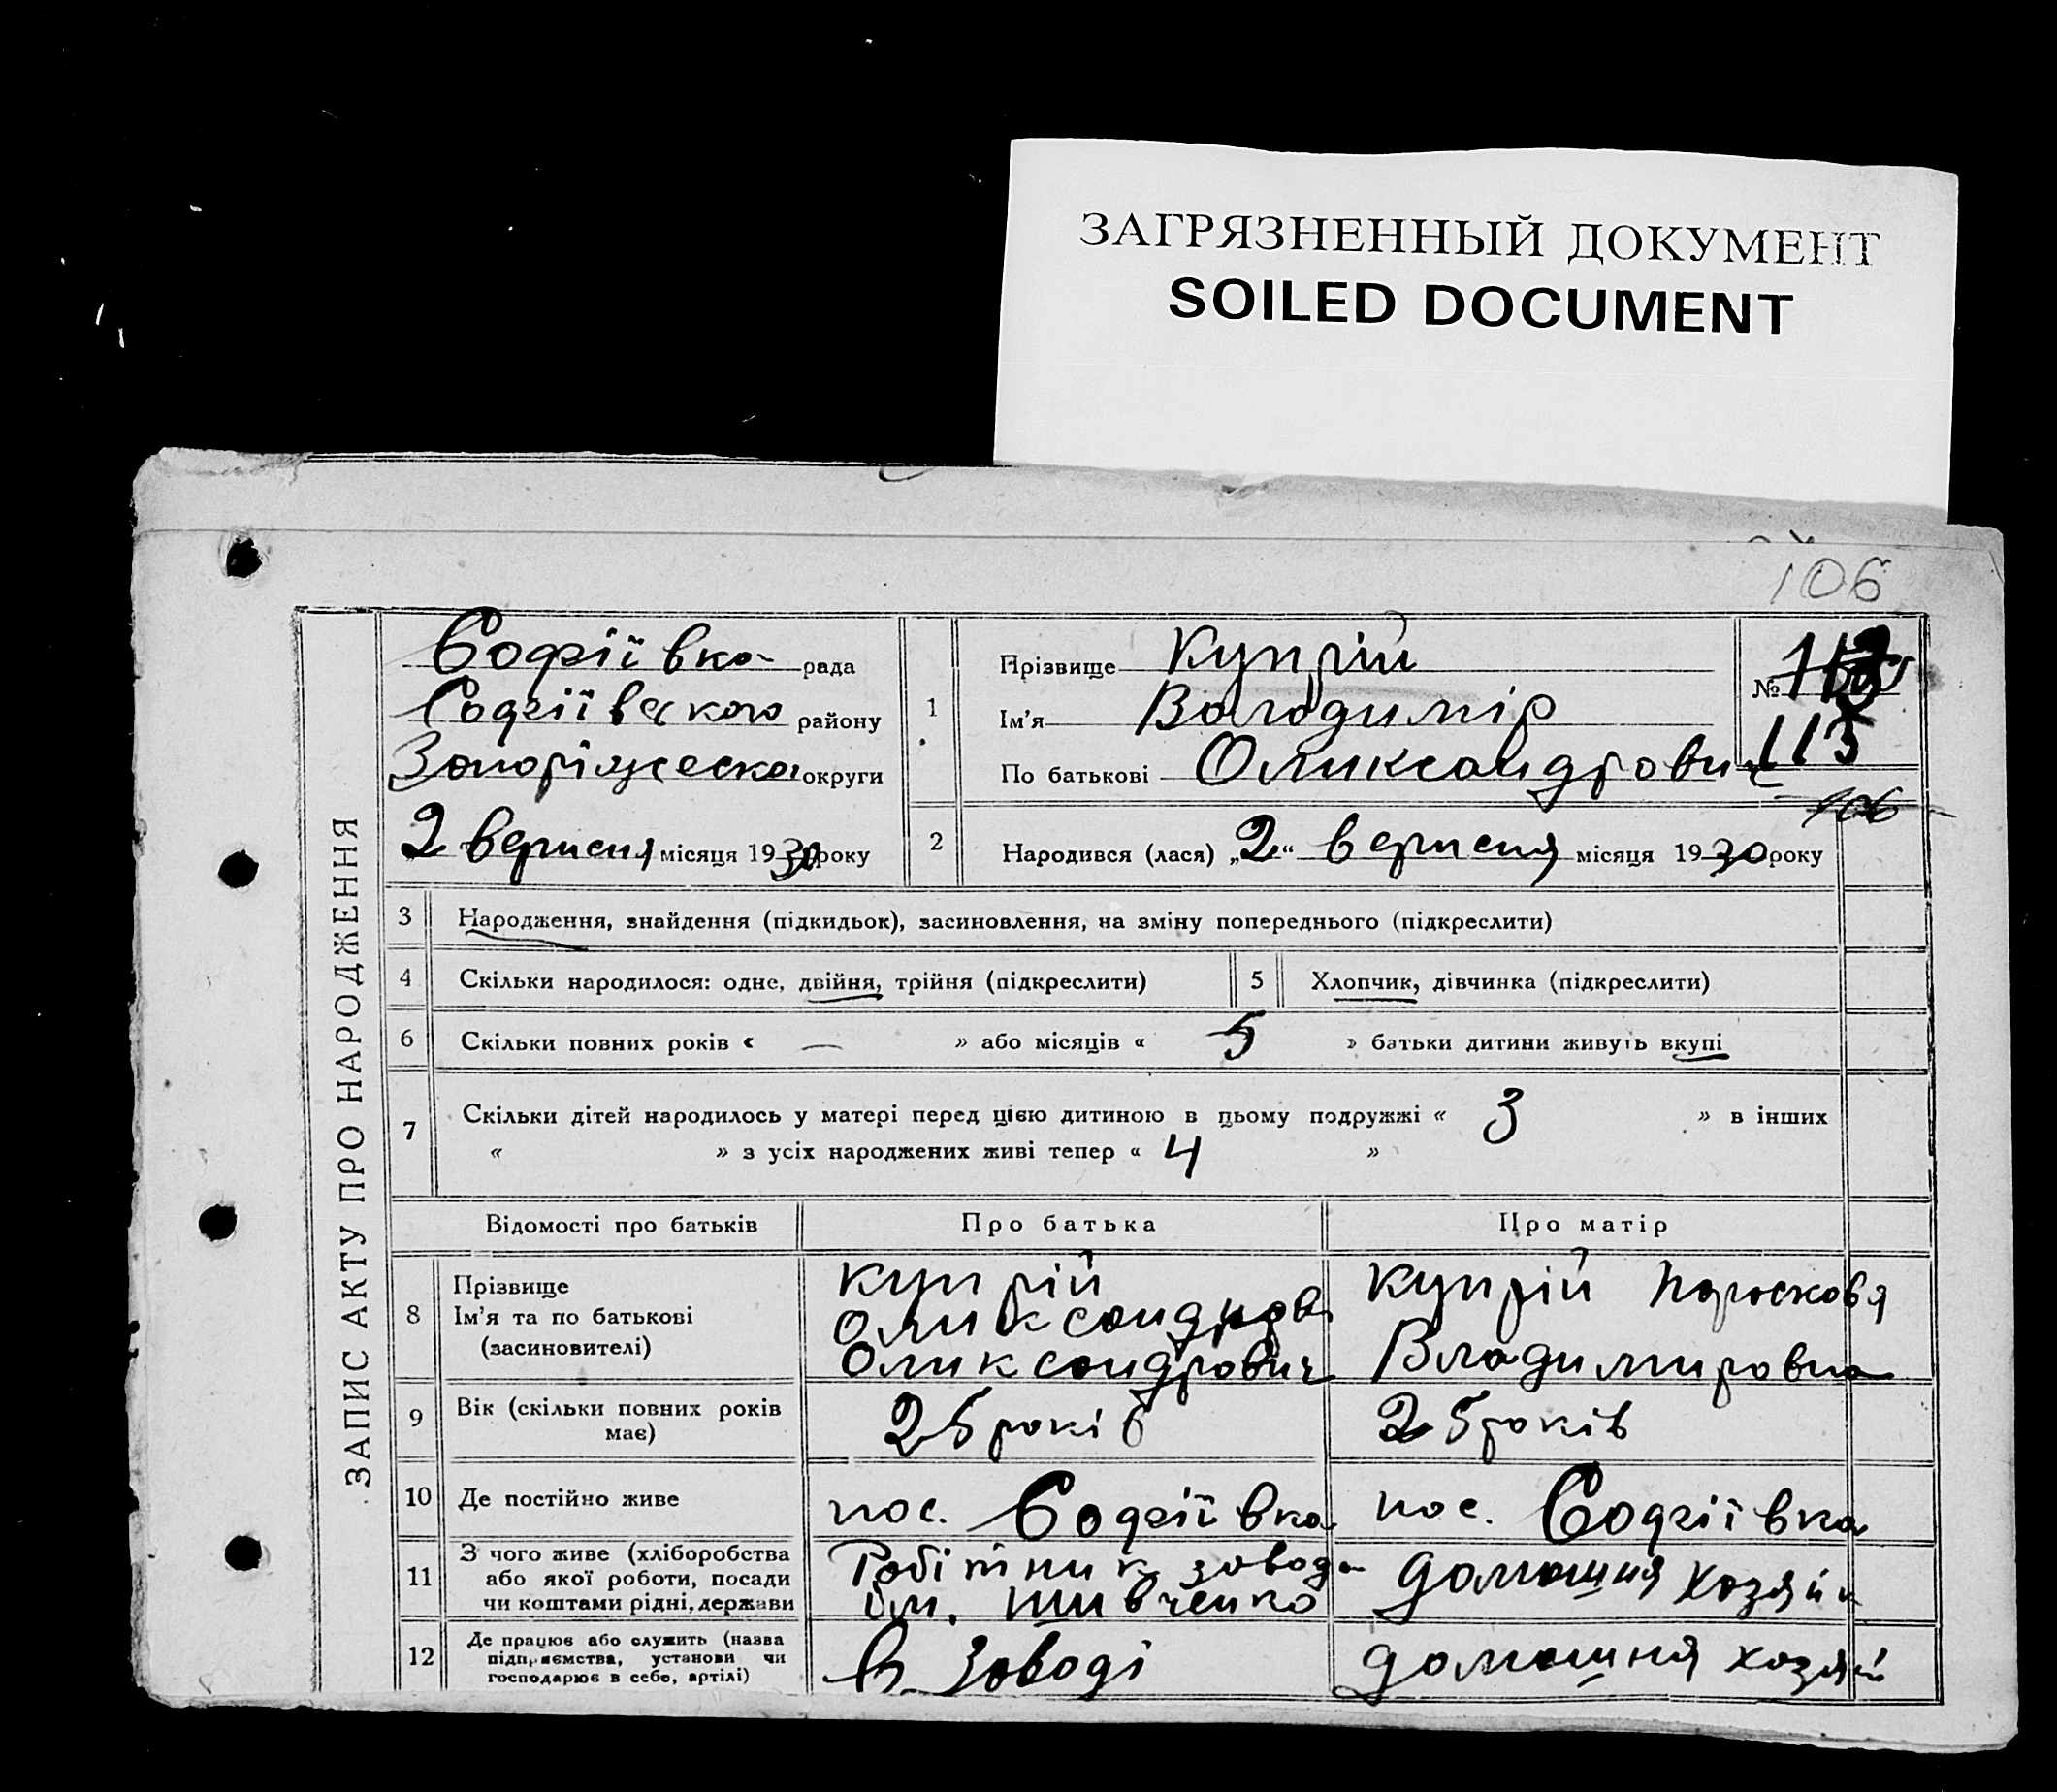 ЗАГРЯЗНЕННЫЙ ДОКУМЕНТ
SOILED DOCUMENT
106
ЗАПИС АКТУ ПРО НАРОДЖЕННЯ
Софіївка рада
Софіївського району
Запоріжеска округи
2 верисня місяця 1930 року
1
Прізвище Купрій
Ім'я Володимір
По батькові Оликсандрович
№
113
106
2 Народився (лася) „2“ верисня місяця 1930 року
3 Народження, знайдення (підкидьок), засиновлення, на зміну попереднього (підкреслити)
4 Скільки народилося: одне, двійня, трійня (підкреслити)
5 Хлопчик, дівчинка (підкреслити)
6 Скільки повних років « — » або місяців « 5 » батьки дитини живуть вкупі
7 Скільки дітей народилось у матері перед цією дитиною в цьому подружжі « 3 » в інших
« » з усіх народжених живі тепер « 4 »
Відомості про батьків Про батька Про матір
8 Прізвище
Ім'я та по батькові
(засиновителі)
Купрій
Оликсандров
Оликсандрович
Купрій Парасковя
Владимировна
9 Вік (скільки повних років
має)
25 років
25 років
10 Де постійно живе
пос. Софіївка
пос. Софіївка
11 З чого живе (хліборобства
або якої роботи, посади
чи коштами рідні, держави
Робітник завода
ім. Шивченко
домашня хозяйк
12 Де працює або служить (назва
підприємства, установи чи
господарює в себе, артілі)
В заводі
домашня хозяй